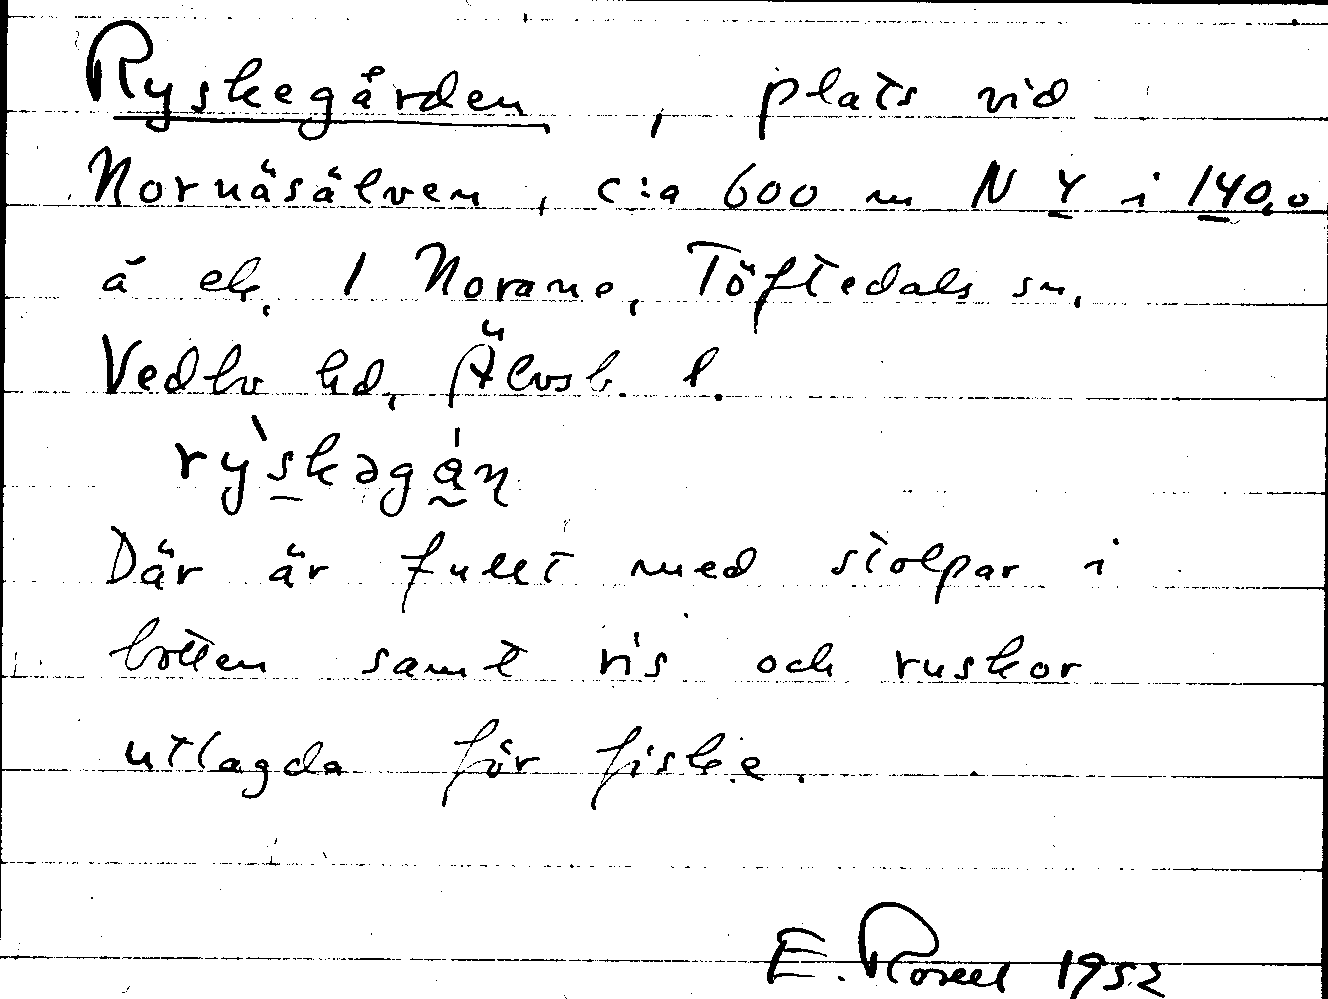 Ryskegården, plats vid
Nornäsälven, c:a 600 m N 4 i 140,0
å ek. 1 Norane, Töftedals sn,
Vedbo hd, Älvsb. l.
rỳskəgån
Där är fullt med stolpar i
botten samt ris och ruskor
utlagda för fiske.
E. Rosell 1952